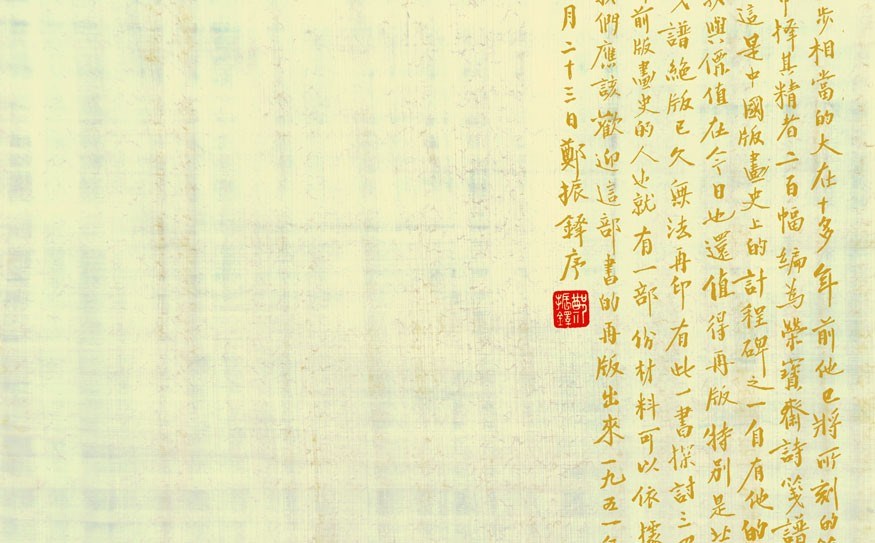 步相當的大在十多年前他已將所刻的
中擇其精者二百幅編為榮寶齋詩箋譜
這是中國版畫史上的計程碑之一自有他的
與價值在今日也還值得再版特別是
箋譜絕版已久無法再印有此一書探討三
前版畫史的人也就有一部份材料可以依據
我們應該歡迎這部書的再版出來一九五一年
月二十三日鄭振鐸序